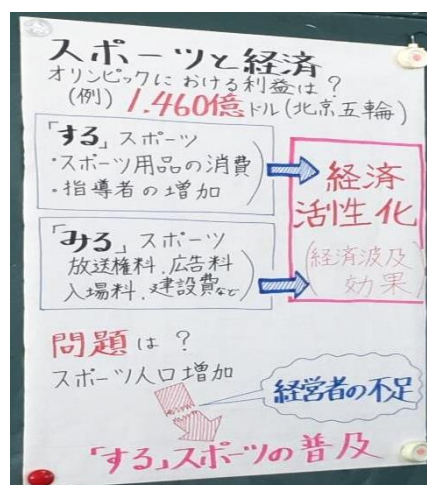 スポーツと経済
オリンピックにおける利益は?
(例) 1.460億ドル(北京五輪)
「する」スポーツ
・スポーツ用品の消費
・指導者の増加
経済
活性化
(経済波及
効果)
「みる」スポーツ
放送権料、広告料
入場料、建設費など
問題は?
スポーツ人口増加
経営者の不足
「する」スポーツの普及